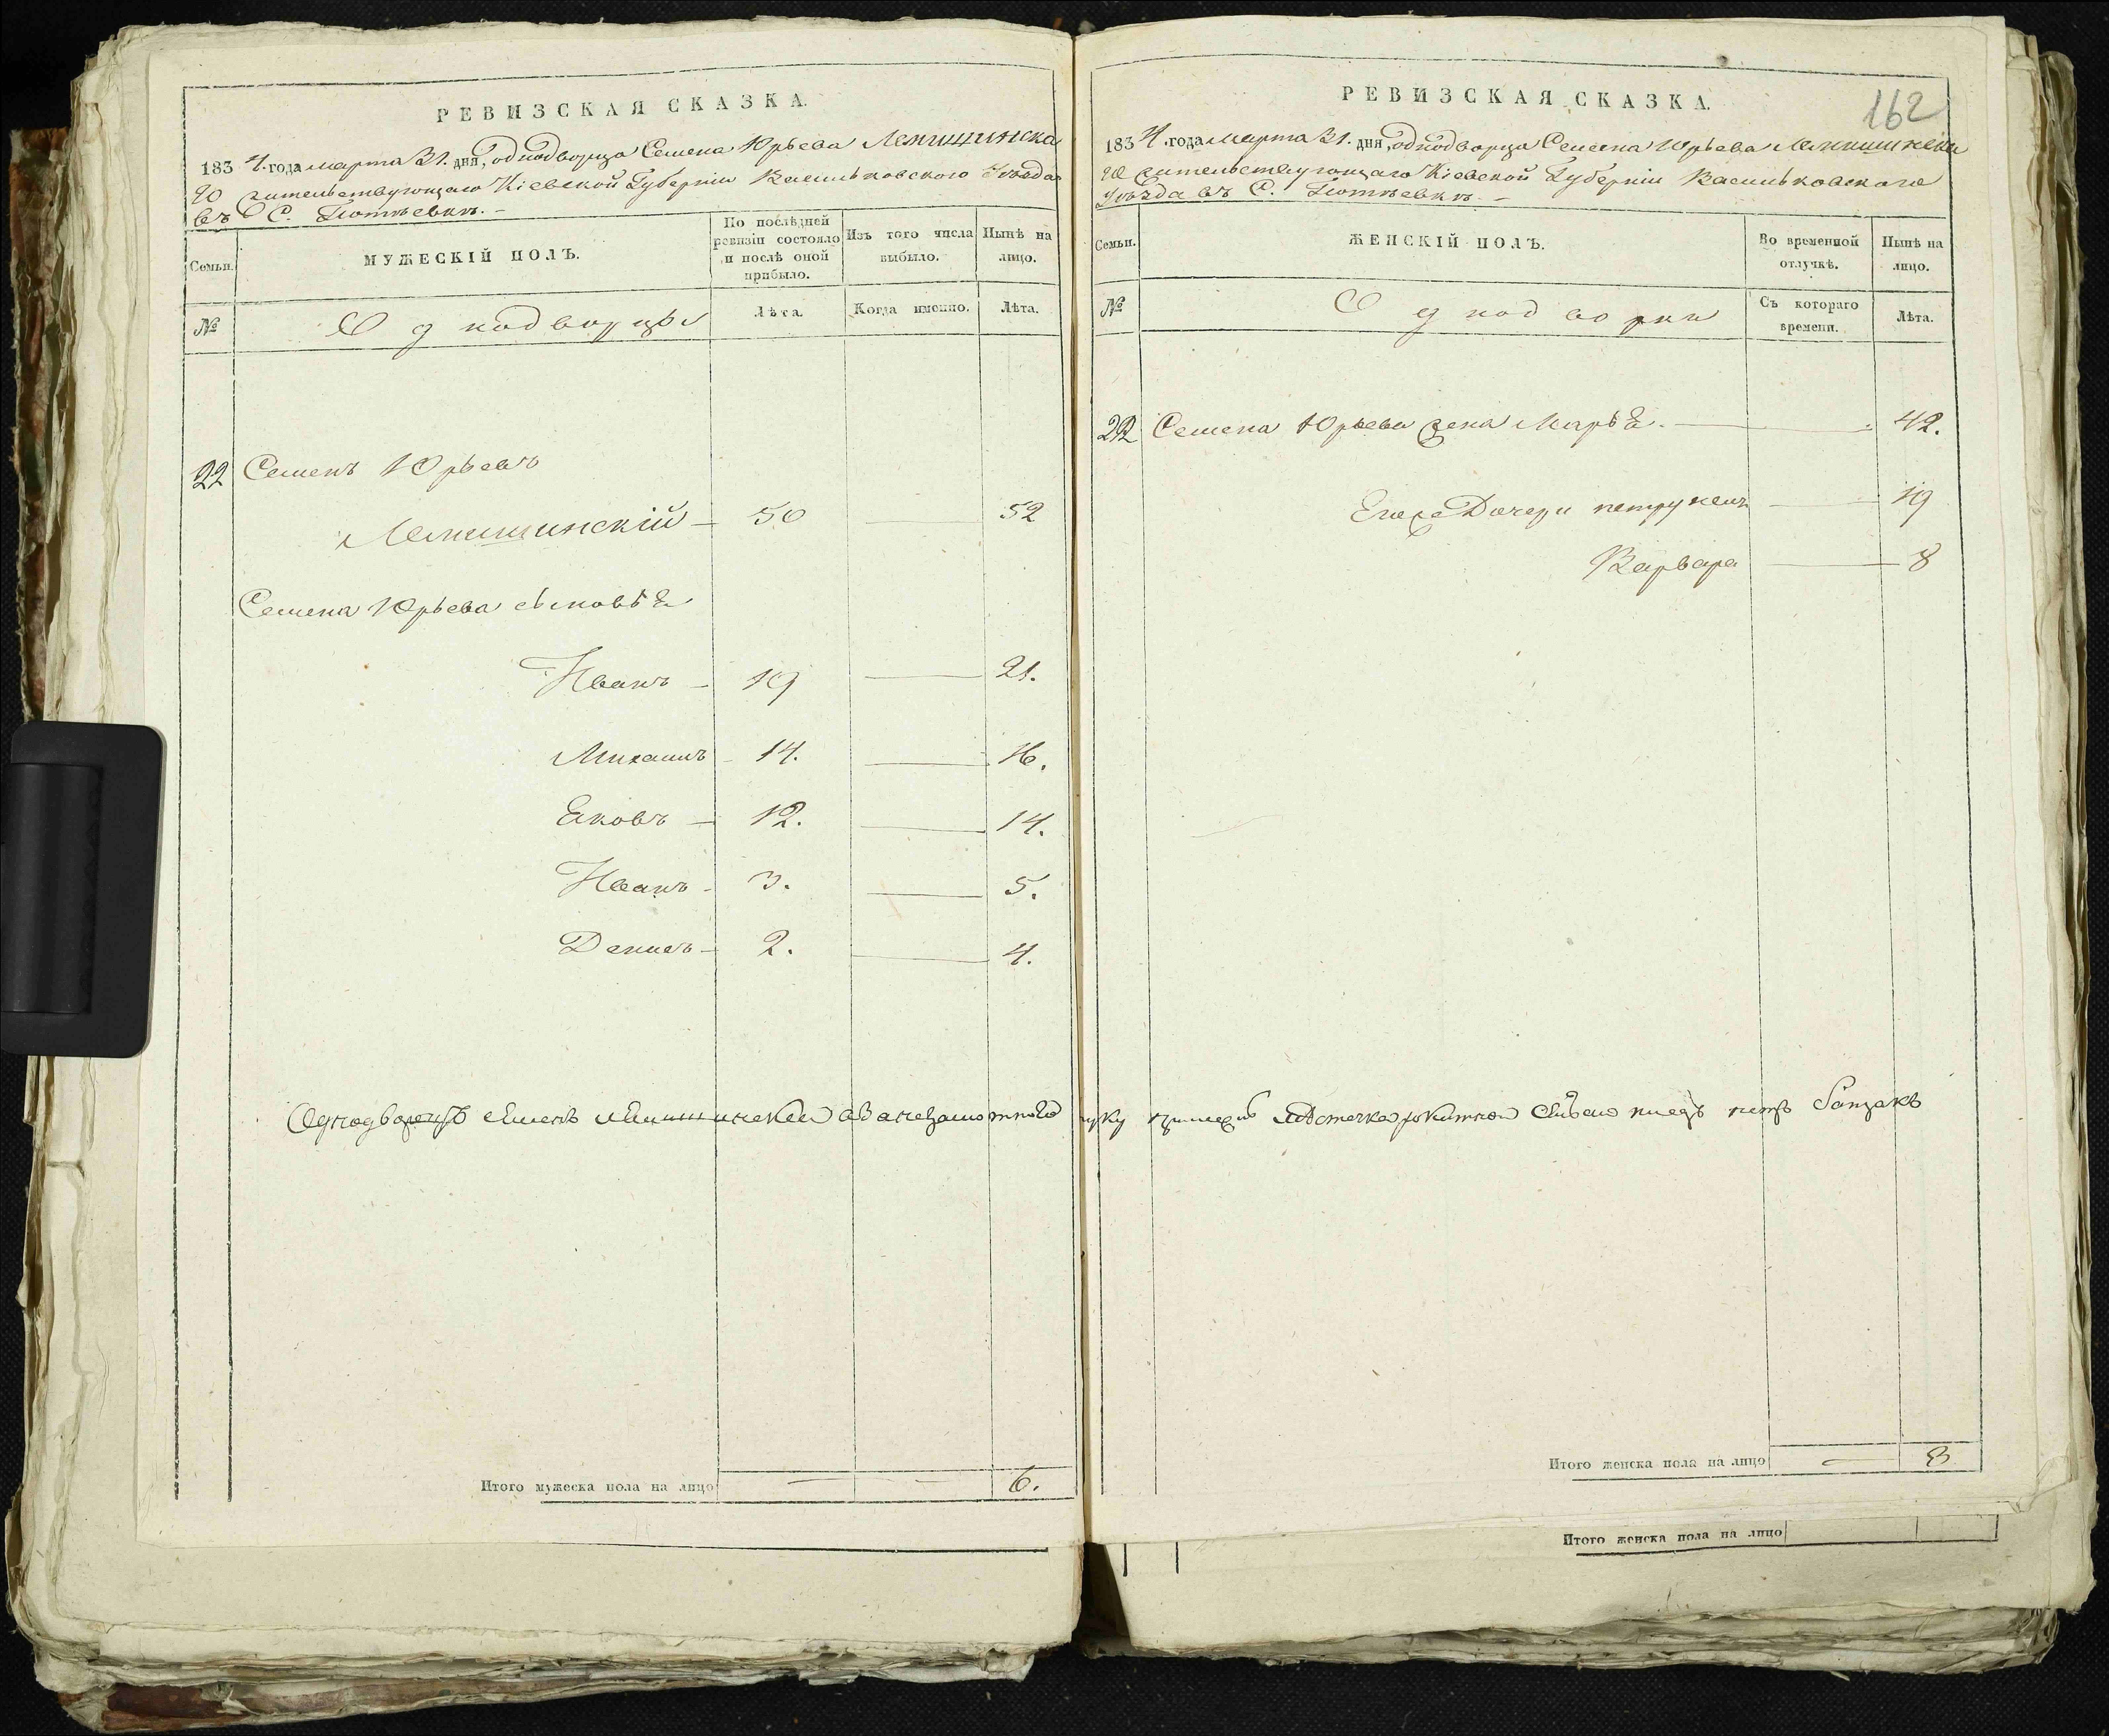 РЕВИЗСКАЯ СКАЗКА.
1834. года марта 31. дня, однодворца Семена Юрьева
го жительствующаго Кіевской Губерніи Васильковского Уѣзда
въ С.
Семьи.
МУЖЕСКІЙ ПОЛЪ.
По послѣдней ревизіи состояло и послѣ оной прибыло.
Изъ того числа выбыло.
Нынѣ на лицо.
№
Однодворцы
Лѣта.
Когда именно.
Лѣта.
22 Семенъ Юрьевъ
50 — 52
Семена Юрьева сыновья
Иванъ — 19 — 21.
Михаилъ — 14. — 16.
Яковъ — 12. — 14.
Иванъ — 3. — 5.
Денисъ — 2. — 4.
Однодворецъ
Итого мужеска пола на лицо — — 6.
162
РЕВИЗСКАЯ СКАЗКА.
1834. года марта 31. дня, однодворца Семена Юрьева
го жительствующаго Кіевской Губерніи Васильковского
Уѣзда въ С.
Семьи.
ЖЕНСКІЙ ПОЛЪ.
Во временной отлучкѣ.
Нынѣ на лицо.
№
Однодворки
Съ котораго времени.
Лѣта.
22 Семена Юрьева жена Марья. — 42.
Его же Дочери — 19
Варвара — 8
Итого женска пола на лицо — 3
Итого женска пола на лицо